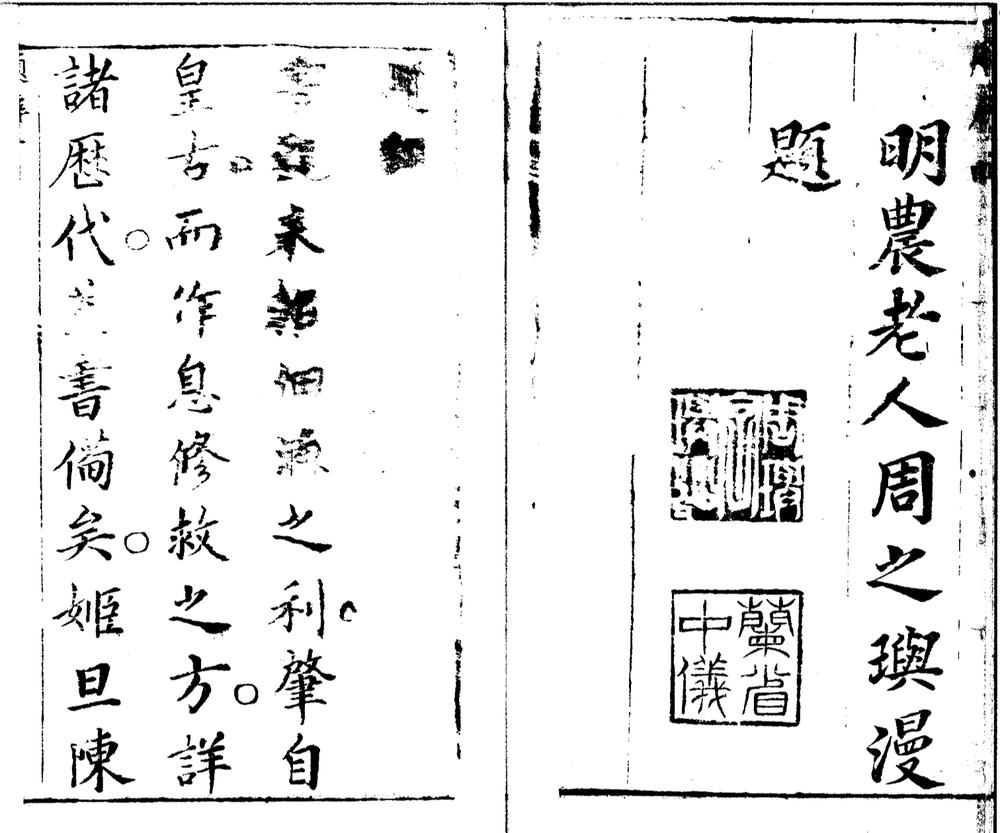 明農老人周之璵漫
題
蘭省
中儀
耒耜佃漁之利。肇自
皇古。而作息修救之方。詳
諸厯代。書俻矣。姬旦陳